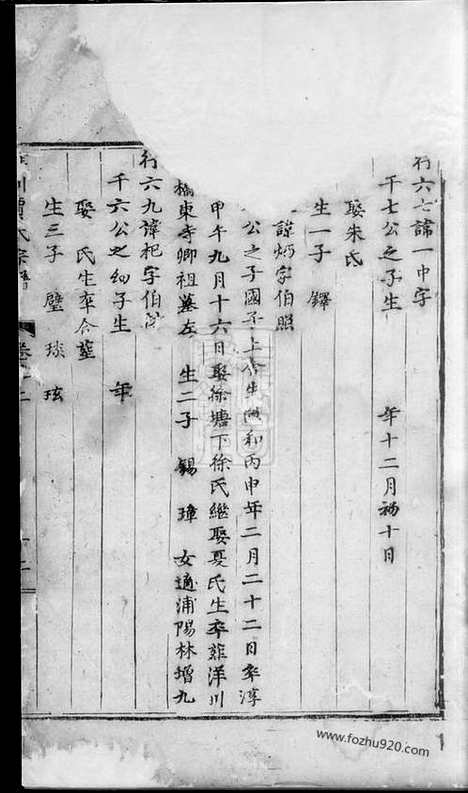 行六七諱一中字
千七公之子生 年十二月初十日
娶朱氏
生一子 鐸
諱炳字伯照
公之子國子上舍生 和丙申年二月二十二日卒淳
甲午九月十六日娶徐塘下徐氏繼娶夏氏生卒葬洋川
橋東寺卿祖墓左 生二子 錫 璋 女適浦陽林增九
行六九諱杞字伯
千六公之幼子生 年
娶 氏生卒合葬
生三子 璧 琰 玹
氏宗譜 卷十二
www.fozhu920.com